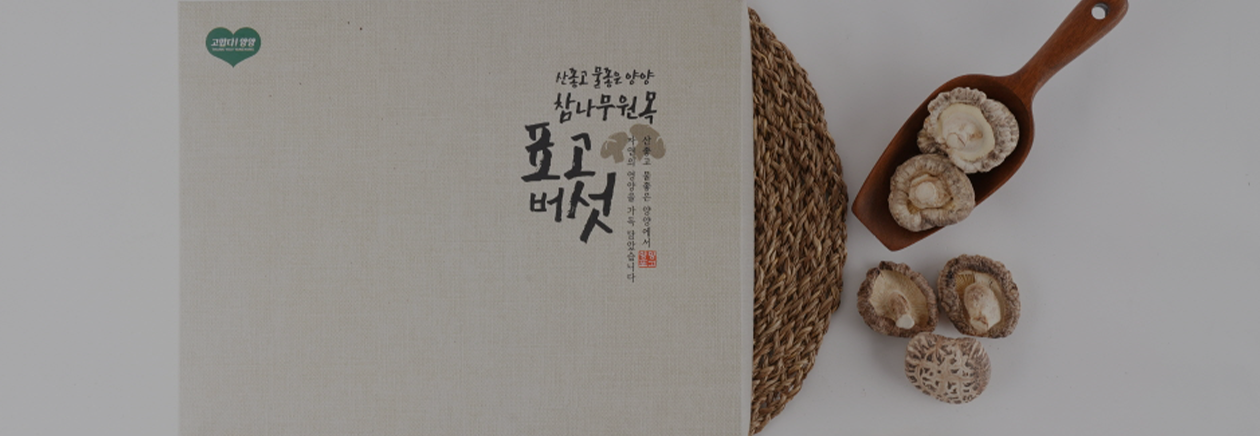 고맙다! 양양
산좋고 물좋은 양양
참나무원목
표고
버섯
산좋고 물좋은 양양에서
자연의 영양을 가득 담았습니다